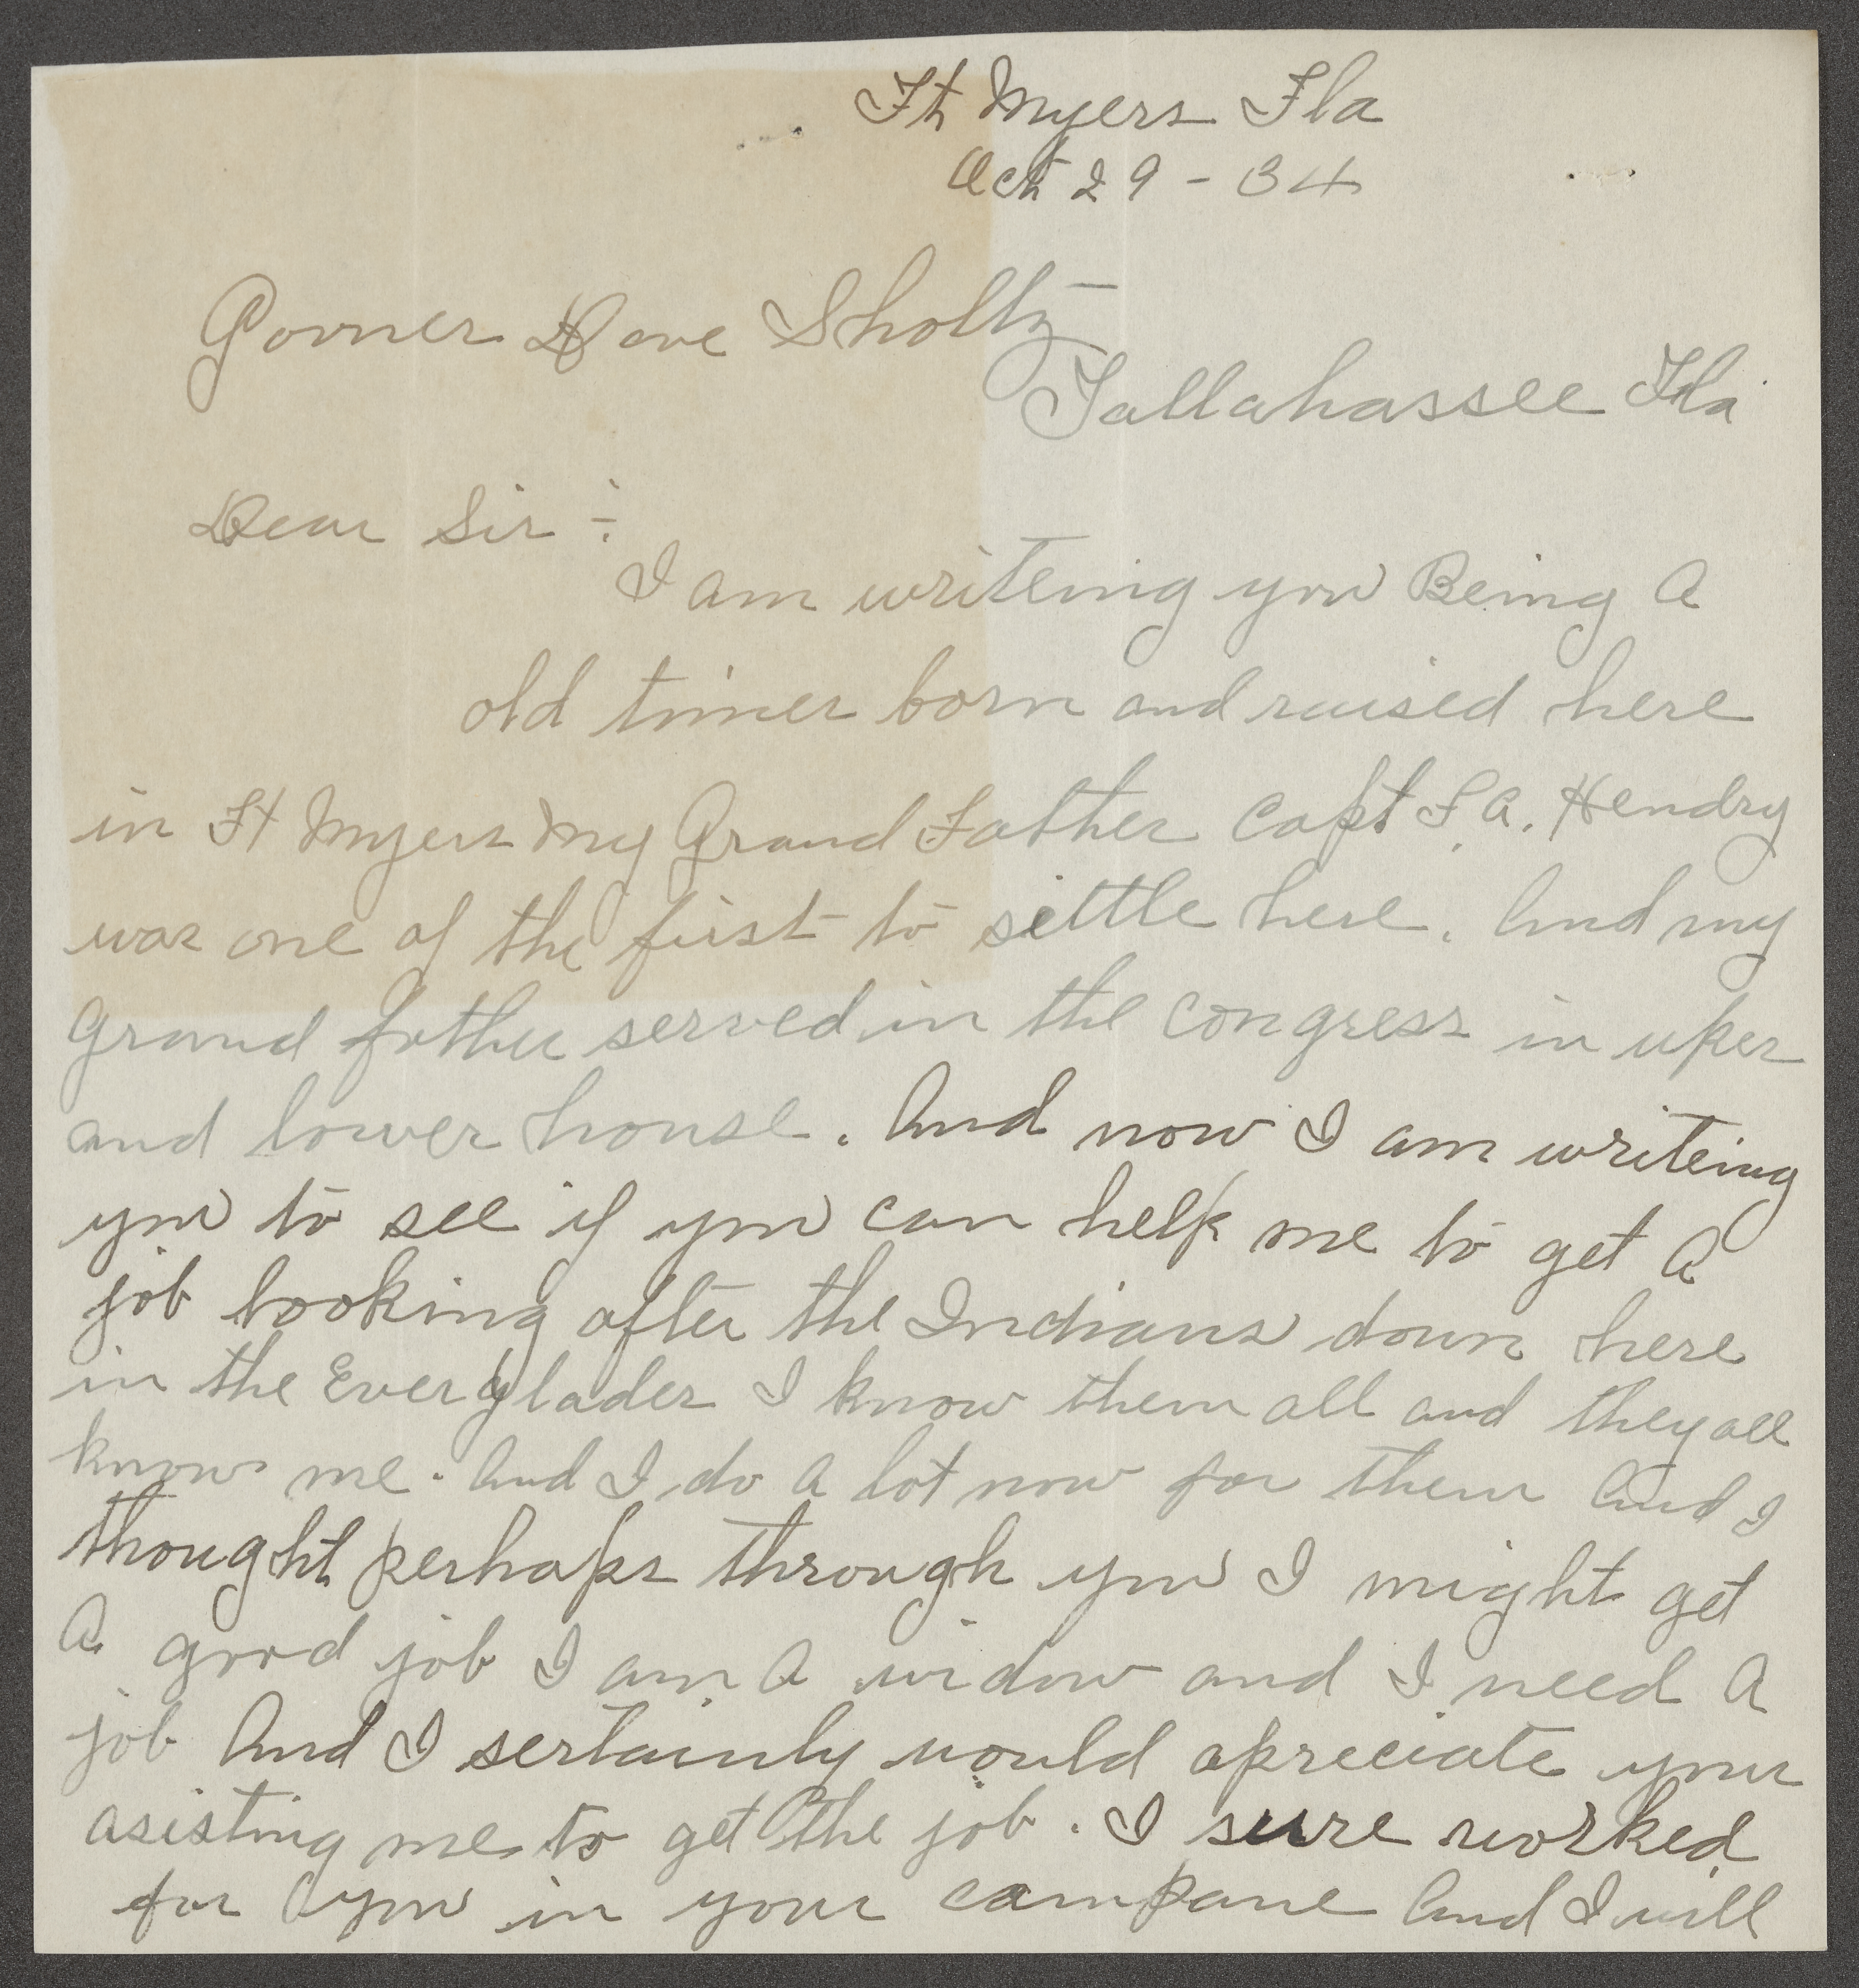 Ft Myers Fla
Oct 29 - 34
Govner Dave Sholtz
Tallahassee Fla
Dear Sir :-
I am writeing you Being A
old timer born and raised here
in Ft Myers My Grand Father Capt F. A. Hendry
was one of the first to settle here. And my
grand father served in the congress in uper
and lower house. And now I am writeing
you to see if you can help me to get A
job looking after the Indians down here
in the Everglades I know them all and they all
know me. And I do A lot now for them And I
thought perhaps through you I might get
A good job I am A widow and I need A
job And I sertainly would apreciate your
asisting me to get the job. I sure worked
for you in your campane And I will